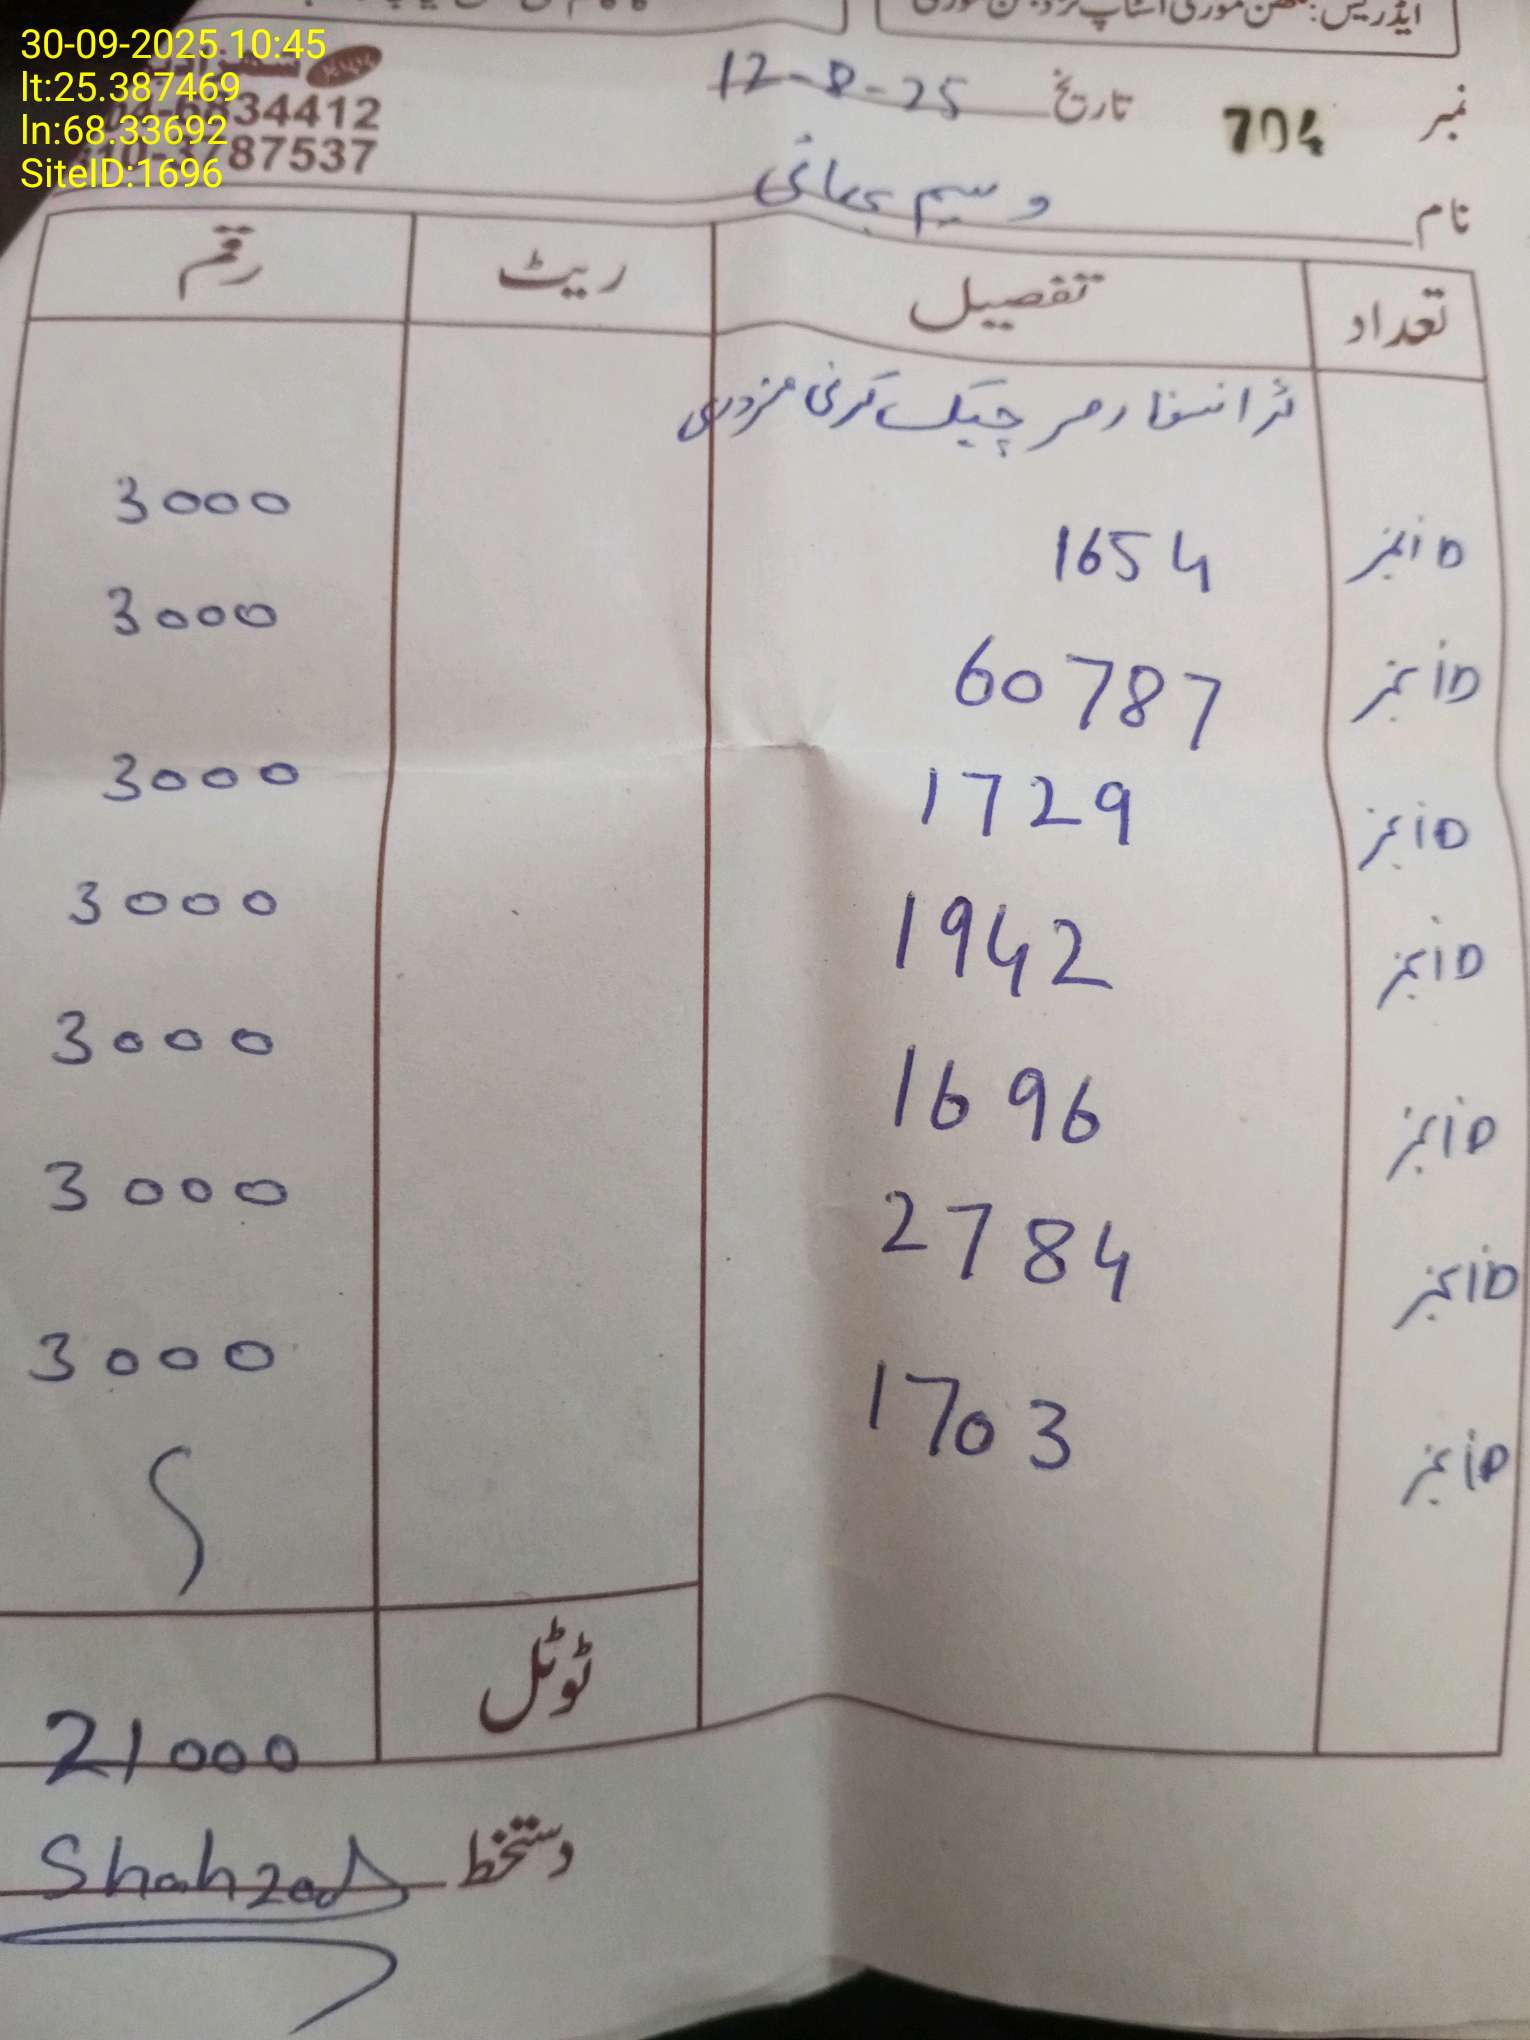 30-09-2025 10:45
lt:25.387469
ln:68.33692
SiteID:1696
ایڈریس:
34412
87537
نمبر 704 تاریخ 12-8-25
نام وسیم بھائی
تعداد تفصیل ریٹ رقم
ٹرانسفارمر چیک کرنی مزدوری
ID نمبر 1654 3000
ID نمبر 60787 3000
ID نمبر 1729 3000
ID نمبر 1942 3000
ID نمبر 1696 3000
ID نمبر 2784 3000
ID نمبر 1703 3000
ٹوٹل 21000
دستخط Shahzad